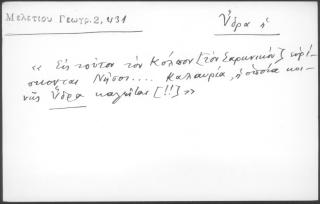 Μελετίου Γεωγρ. 2, 431
Ὕδρα ἡ
« Εἰς τοῦτον τὸν Κόλπον [τὸν Σαρωνικὸν] εὑρί-
σκονται Νῆσοι.... Καλαυρία, ἡ ὁποία κοι-
νῶς Ὕδρα καλεῖται [!!] »